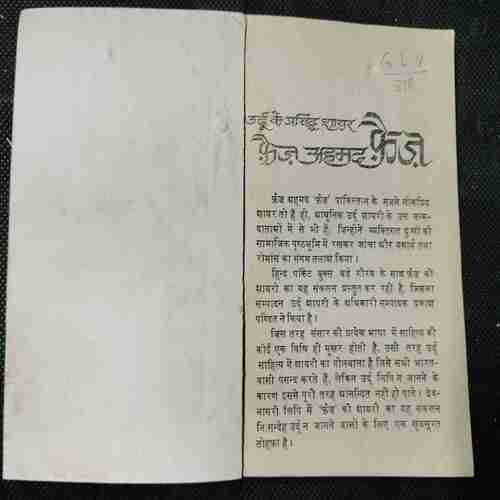 उर्दू के प्रसिद्ध शायर
फ़ैज़ अहमद फ़ैज़
फ़ैज़ अहमद 'फ़ैज़' पाकिस्तान के सबसे लोकप्रिय
शायर तो हैं ही, आधुनिक उर्दू शायरी के उन
में से भी हैं, जिन्होंने व्यक्तिगत दुःखों को
सामाजिक पृष्ठभूमि में रखकर जांचा और यथार्थ तथा
रोमांस का संगम तलाश किया।
हिन्द पॉकेट बुक्स बड़े गौरव के साथ फ़ैज़ की
शायरी का यह संकलन प्रस्तुत कर रही है, जिसका
सम्पादन उर्दू शायरी के अधिकारी सम्पादक प्रकाश
पण्डित ने किया है।
जिस तरह संसार की प्रत्येक भाषा में साहित्य की
कोई एक विधि ही मुखर होती है, उसी तरह उर्दू
साहित्य में शायरी का बोलबाला है जिसे सभी भारत-
वासी पसन्द करते हैं, लेकिन उर्दू लिपि न जानने के
कारण इससे पूरी तरह आनन्दित नहीं हो पाते। देव-
नागरी लिपि में 'फ़ैज़' की शायरी का यह संकलन
निःसन्देह उर्दू न जानने वालों के लिए एक खूबसूरत
तोहफा है।